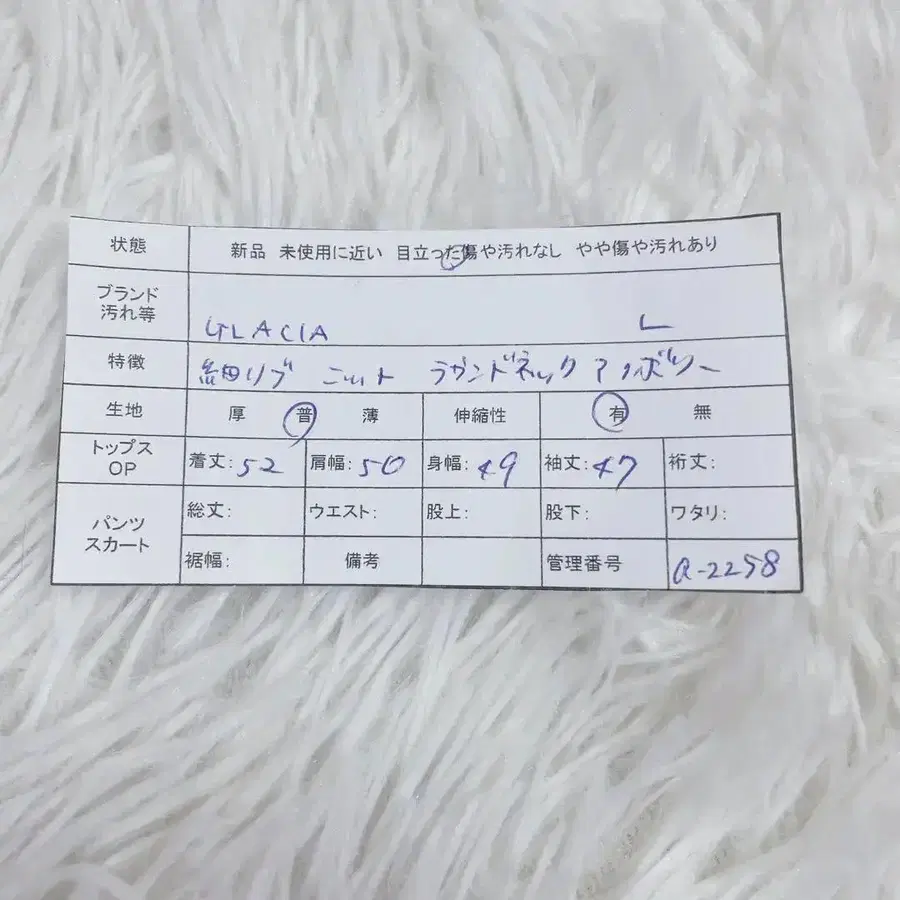 状態 新品 未使用に近い 目立った傷や汚れなし やや傷や汚れあり
ブランド
汚れ等 GLACIA L
特徴 細リブ ニット ラウンドネック
生地 厚 普 薄 伸縮性 有 無
トップス
OP 着丈:52 肩幅:50 身幅:49 袖丈:47 裄丈:
パンツ
スカート 総丈: ウエスト: 股上: 股下: ワタリ:
裾幅: 備考 管理番号 a-2258